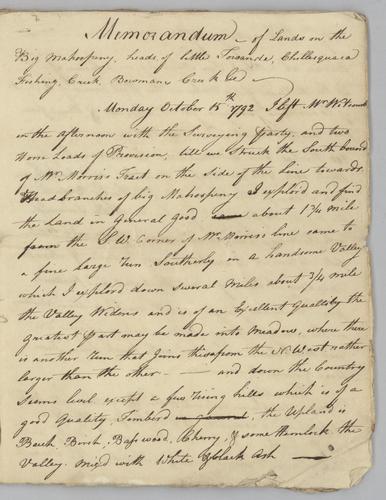 Memorandum — of Lands on the
Big Mahoopeny, heads of little Towanda, Chillesquaca
Fishing Creek, Bowmans Creek &c —
Monday October 15th 1792 I left Mr Wm
in the afternoon with the Surveying Party, and two
Horse Loads of Provision, till we Struck the South bound
of Mr Morris's Tract on the Side of the Line towards
Headbranches of big Mahoopeny I explord and find
the land in General good about 1 3/4 mile
from the S W Corner of Mr Morris's line came to
a fine large Run Southerly in a handsome Valley
which I explord down several Miles about 3/4 mile
the Valley Widens and is of an Excellent Quallity the
greatest Part may be made into Meadows, where there
is another Run that Joins this from the N West rather
larger than the other — and down the Country
Seems level except a few rising hills which is of a
good Quality, Timberd the Upland is
Beech, Birch, Basswood, Cherry, & some Hemlock the
Valley. Mix'd with White & black Ash —